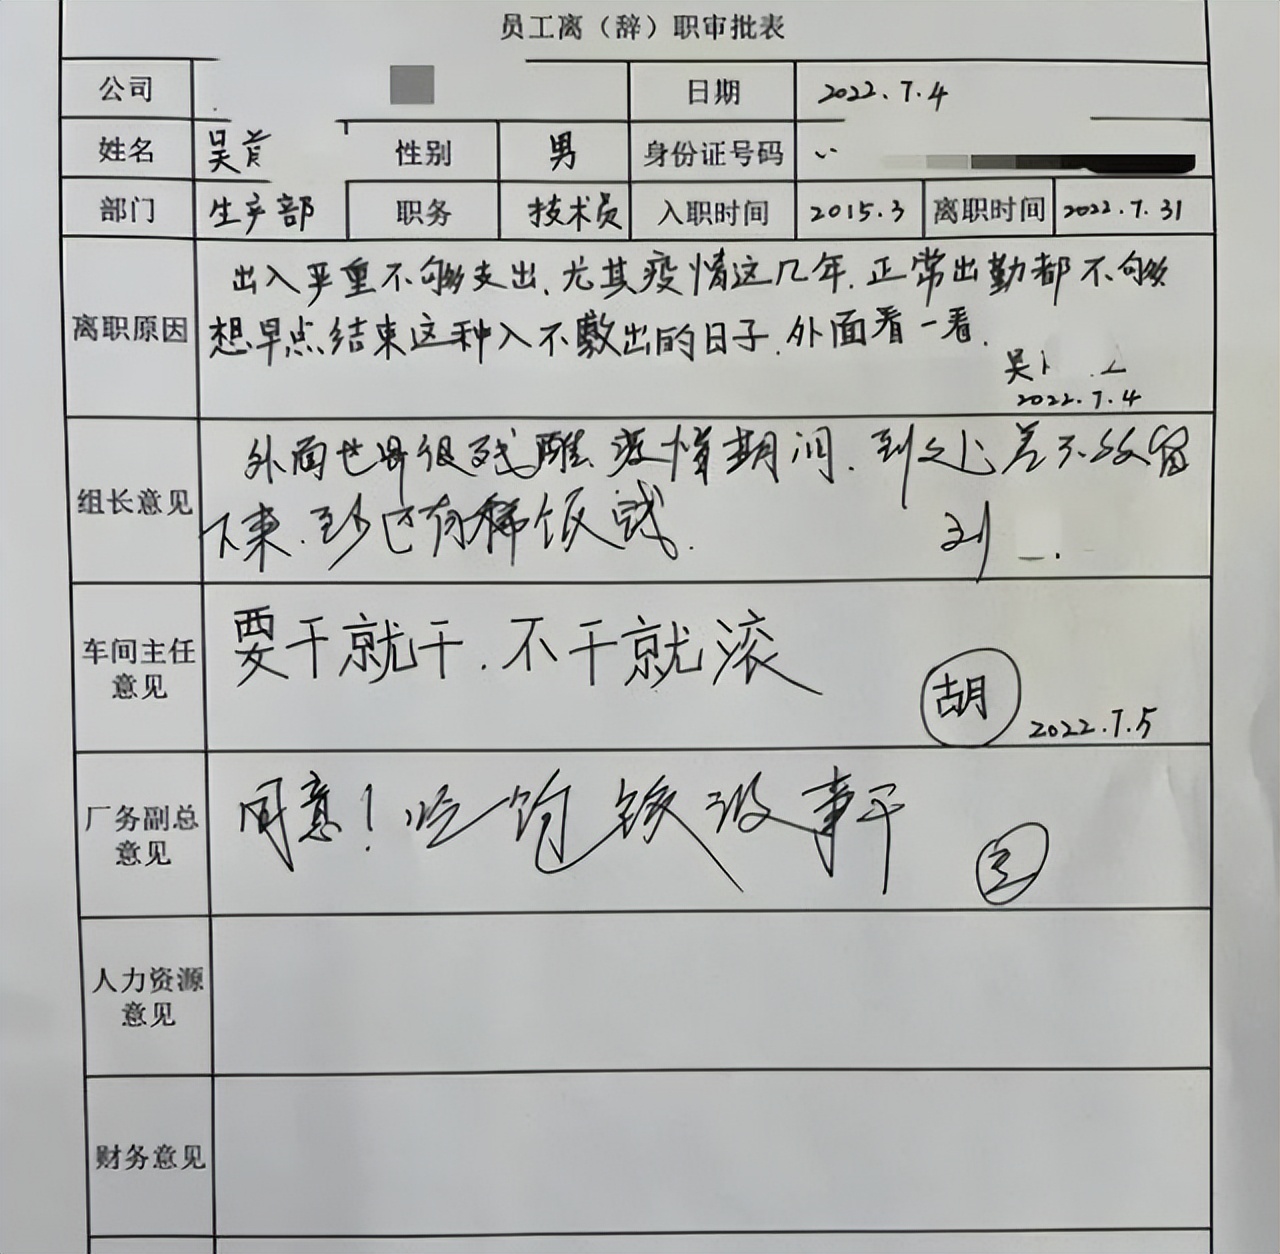 员工离（辞）职审批表
公司 日期 2022.7.4
姓名 吴 性别 男 身份证号码
部门 生产部 职务 技术员 入职时间 2015.3 离职时间 2022.7.31
离职原因
出入严重不够支出、尤其疫情这几年.正常出勤都不够
想早点结束这种入不敷出的日子.外面看一看.
吴
2022.7.4
组长意见
外面世界很残酷、疫情期间.到处差不多留
下来.至少还有稀饭钱.
刘
车间主任
意见
要干就干.不干就滚
胡 2022.7.5
厂务副总
意见
同意！吃饱饭没事干
人力资源
意见
财务意见